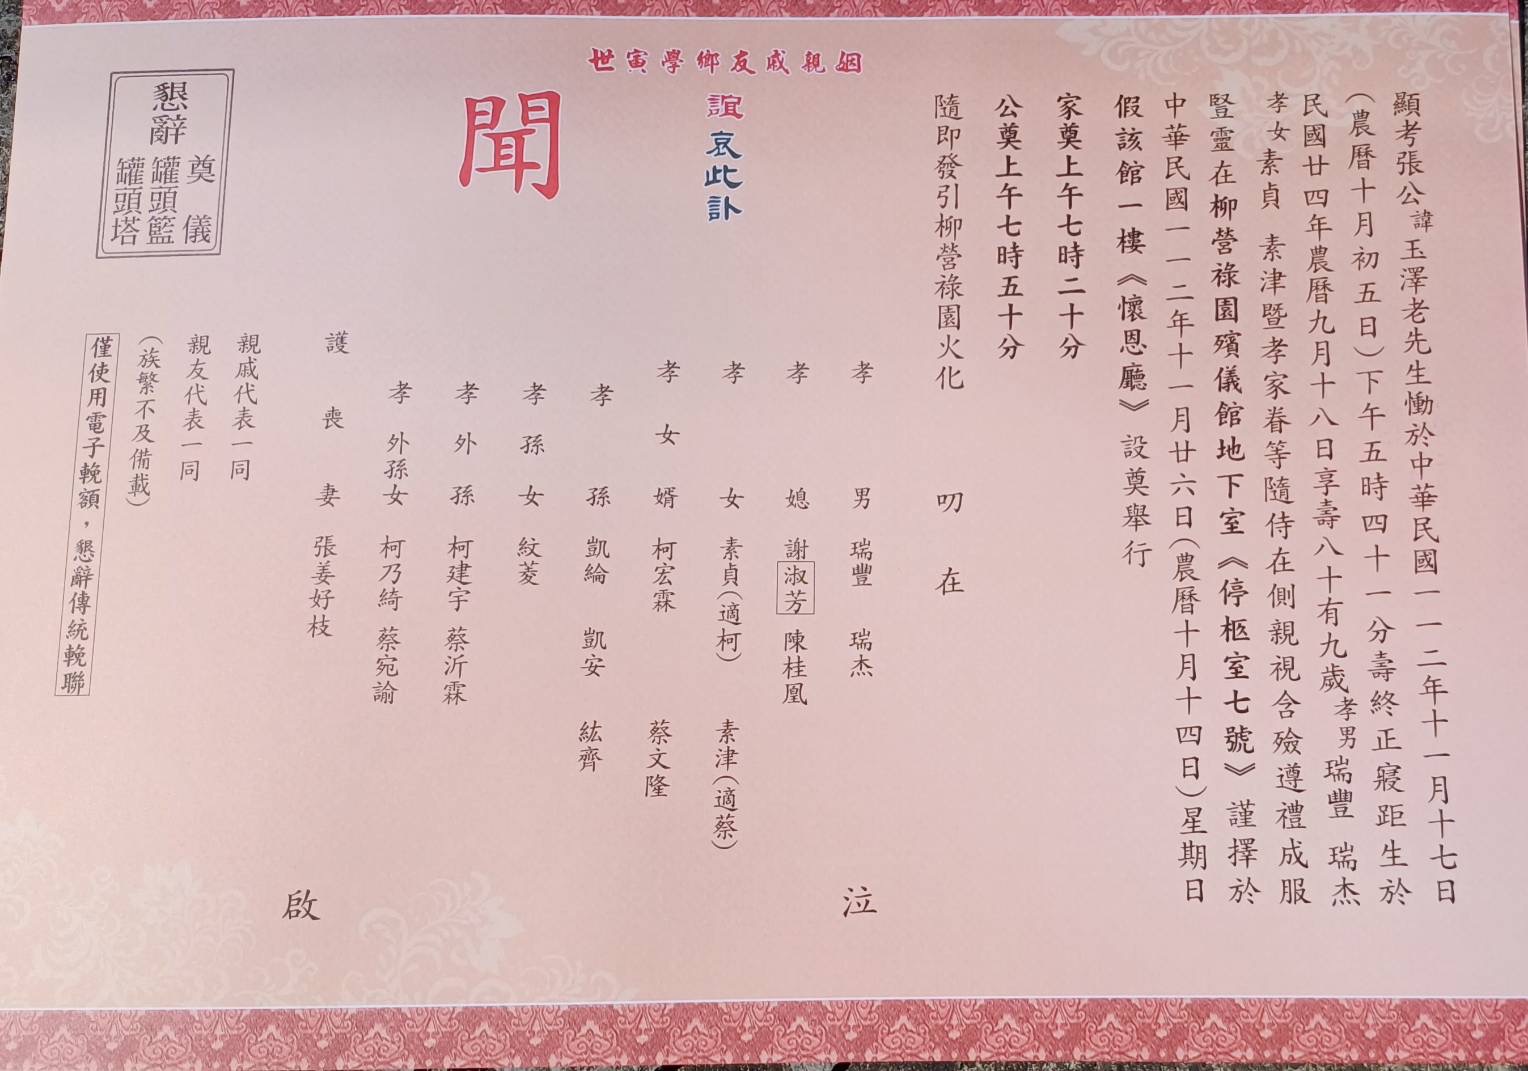 顯考張公諱玉澤老先生慟於中華民國一一二年十一月十七日
(農曆十月初五日)下午五時四十一分壽終正寢距生於
民國廿四年農曆九月十八日享壽八十有九歲孝男瑞豐 瑞杰
孝女素貞 素津暨孝家眷等隨侍在側親視含殮遵禮成服
豎靈在柳營祿園殯儀館地下室《停柩室七號》謹擇於
中華民國一一二年十一月廿六日(農曆十月十四日)星期日
假該館一樓《懷恩廳》設奠舉行
家奠上午七時二十分
公奠上午七時五十分
隨即發引柳營祿園火化 叨在
姻親戚友鄉學寅世
誼哀此訃
聞
孝男 瑞豐 瑞杰 泣
孝媳 謝淑芳 陳桂凰
孝女 素貞(適柯) 素津(適蔡)
孝女婿 柯宏霖 蔡文隆
孝孫 凱綸 凱安 紘齊
孝孫女 紋菱
孝外孫 柯建宇 蔡沂霖
孝外孫女 柯乃綺 蔡宛諭
護喪妻 張姜好枝 啟
親戚代表一同
親友代表一同
(族繁不及備載)
僅使用電子輓額，懇辭傳統輓聯
懇辭
奠儀
罐頭籃
罐頭塔